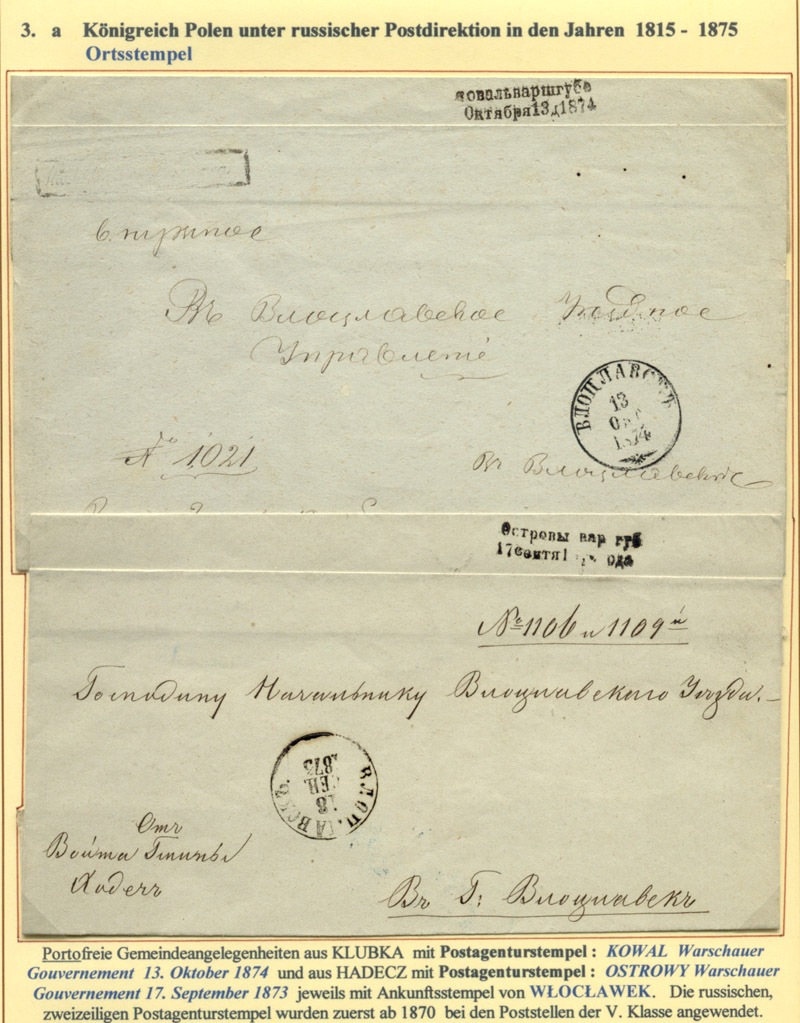 3. a Königreich Polen unter russischer Postdirektion in den Jahren 1815 - 1875
Ortsstempel
ковальваршгубе
Октября13д1874
Въ Влоцлавское Уѣздное
Управленіе
ВЛОЦЛАВСКЪ
13
ОКТ
1874
№ 1021
Въ Влоцлавскѣ
Островы вар губ
17сентя1 ода
№ 1106 и 1109й
Господину Начальнику Влоцлавскаго Уѣзда.
ВЛОЦЛАВСКЪ.
18
СЕН
1873
Отъ
Войта Гмины
Ходечъ
Въ Г: Влоцлавекъ
Portofreie Gemeindeangelegenheiten aus KLUBKA mit Postagenturstempel : KOWAL Warschauer
Gouvernement 13. Oktober 1874 und aus HADECZ mit Postagenturstempel : OSTROWY Warschauer
Gouvernement 17. September 1873 jeweils mit Ankunftsstempel von WŁOCŁAWEK. Die russischen,
zweizeiligen Postagenturstempel wurden zuerst ab 1870 bei den Poststellen der V. Klasse angewendet.